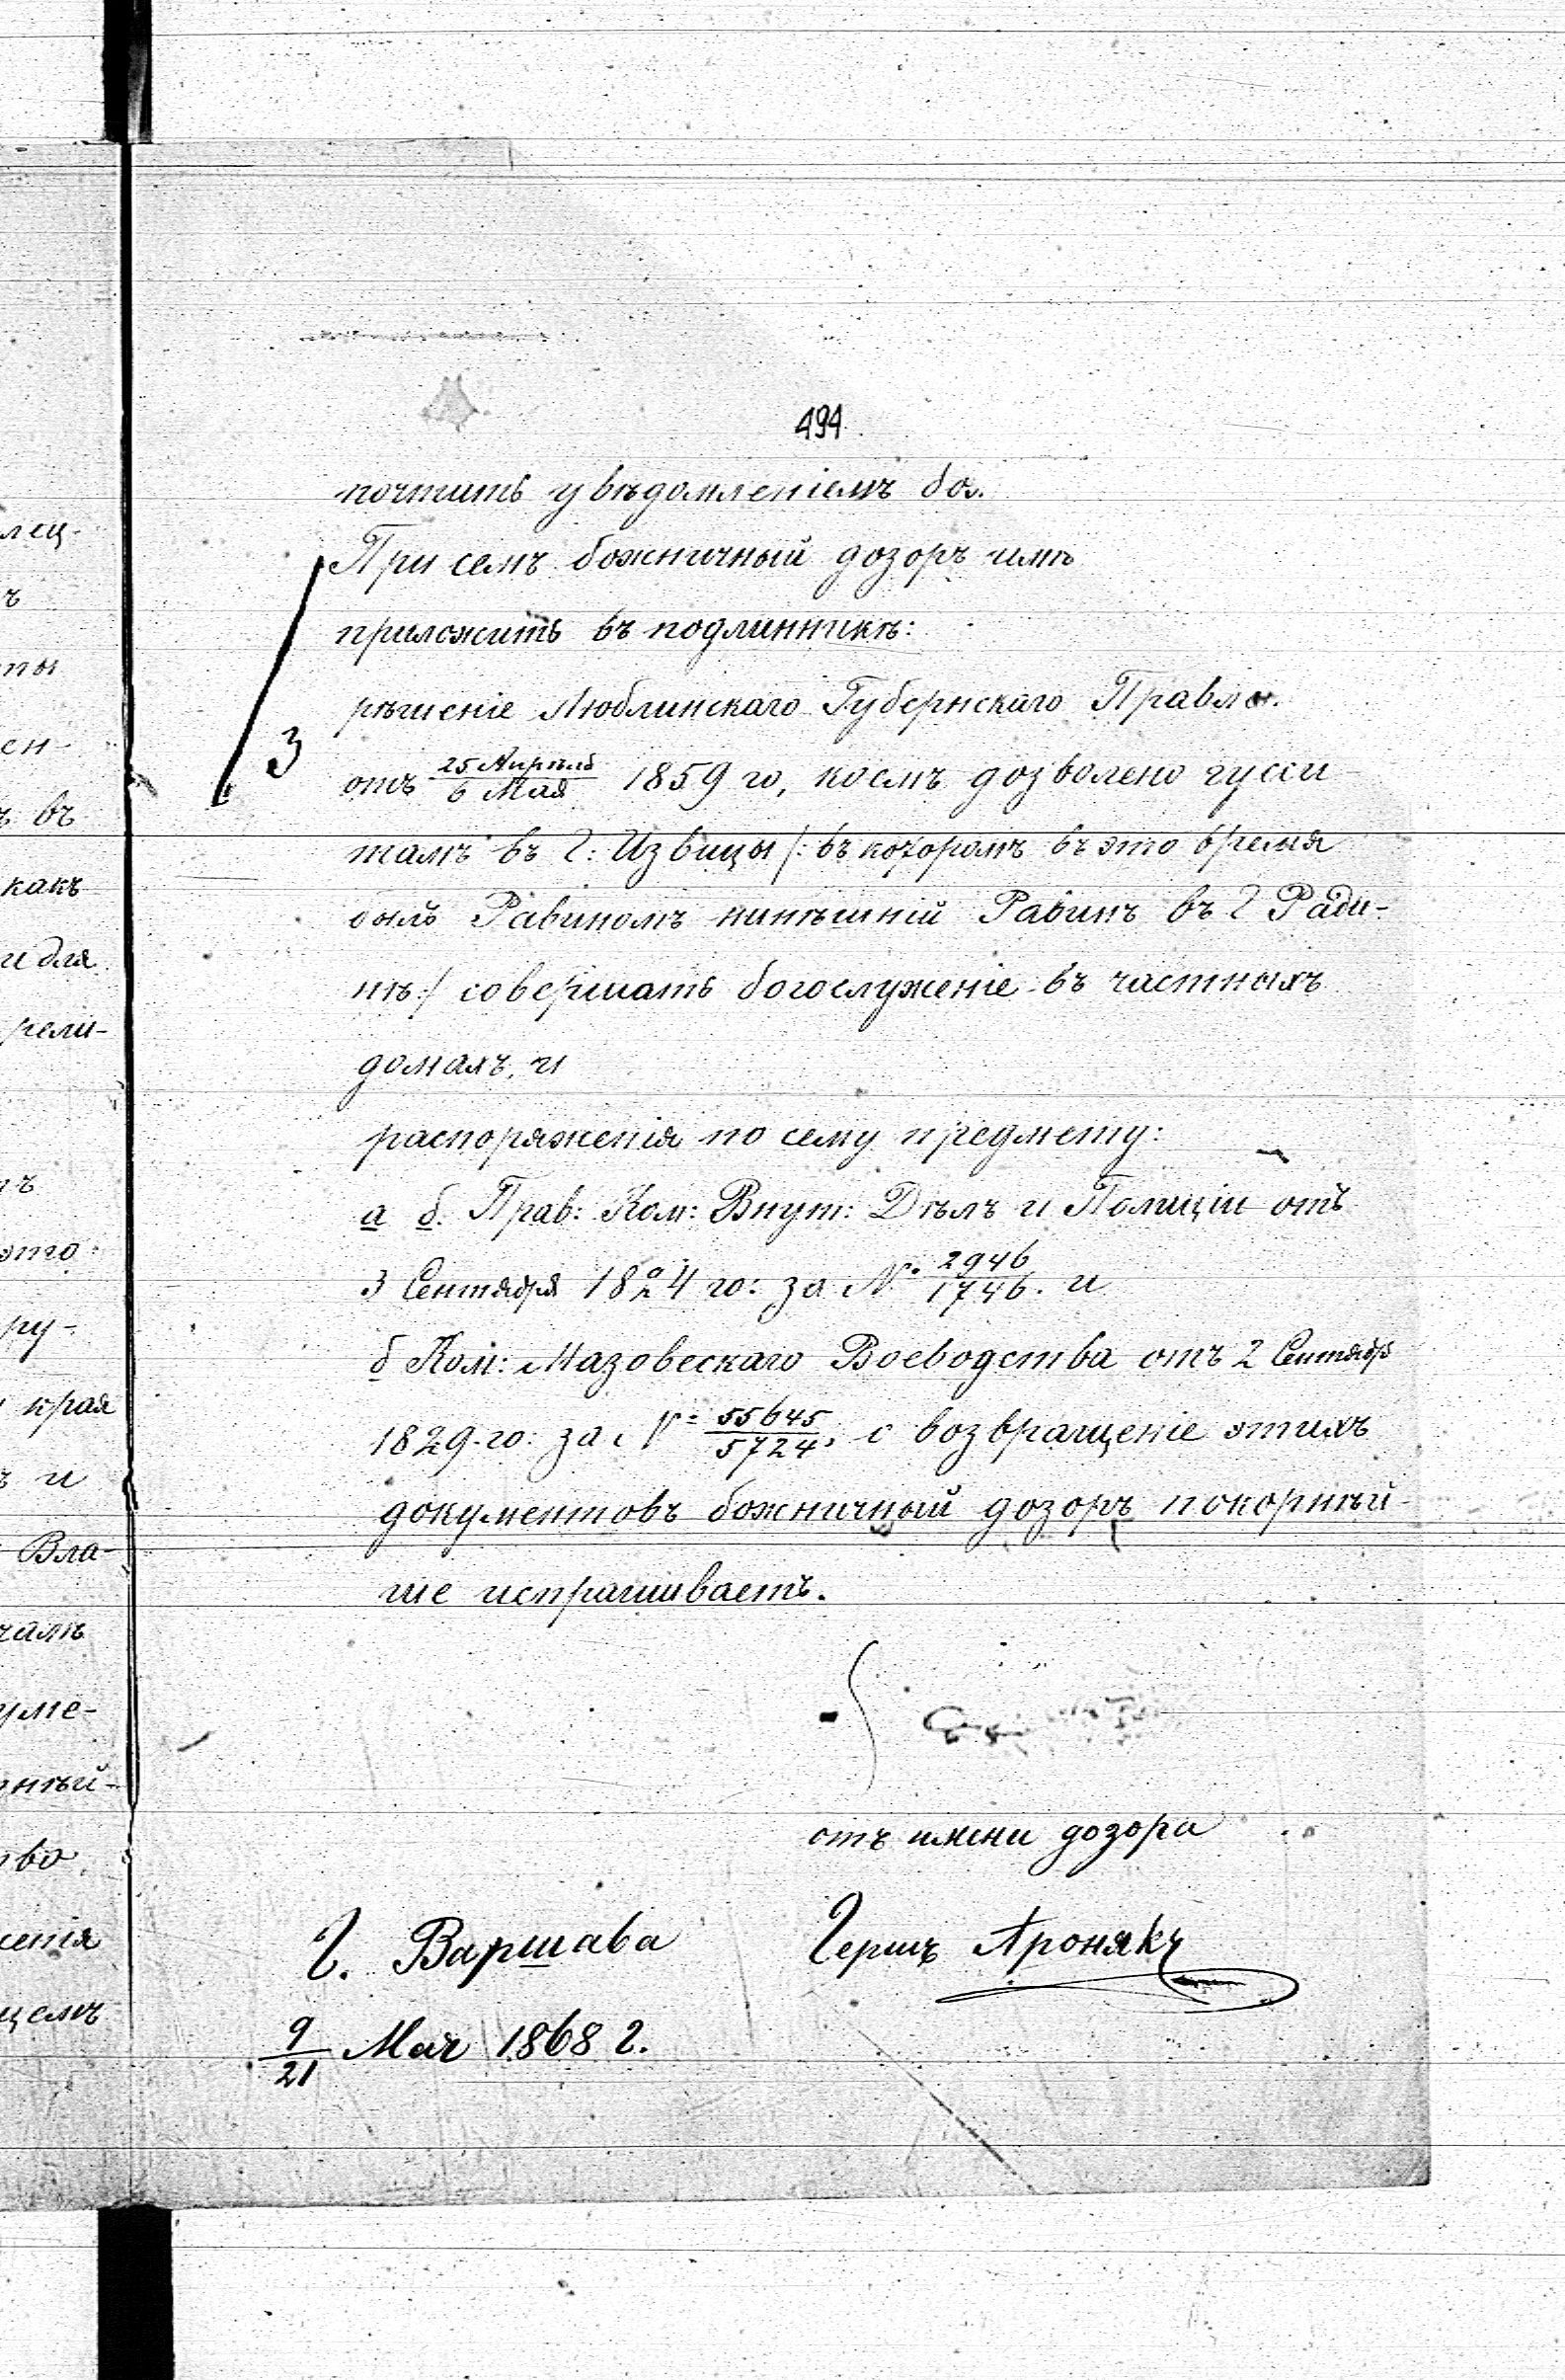 494
почтить увѣдомленіемъ бо.
При семъ божничный дозоръ имѣ
приложить въ подлинникѣ:
рѣшеніе Люблинскаго Губернскаго Правле.
3
отъ 25 Апрѣля/6 Мая 1859 го, коемъ дозволено гусси
тамъ въ г: Извицы /: въ которомъ въ это время
былъ Равиномъ нинѣшній Равинъ въ г Ради-
нѣ:/ совершать богослуженіе въ частныхъ
домахъ, и
распоряженія по сему предмету:
а б. Прав: Ком: Внут: Дѣлъ и Полиціи отъ
3 Сентября 1824 го: за №. 2946/1746. и
б Ком: Мазовескаго Воеводства отъ 2 Сентябр
1829 го: за № 55645/5724, о возвращеніе этихъ
документовъ божничный дозоръ покорнѣй-
ше испрашиваетъ.
отъ имени дозора
Г. Варшава Гершъ Аронякъ
9/21 Мая 1868 г.
лец-
ъ
ты
ен-
ъ въ
какъ
и для
рели-
ъ
это
ру-
края
ъ и
Вла-
чамъ
уме-
нѣй-
тво
сенія
щемъ